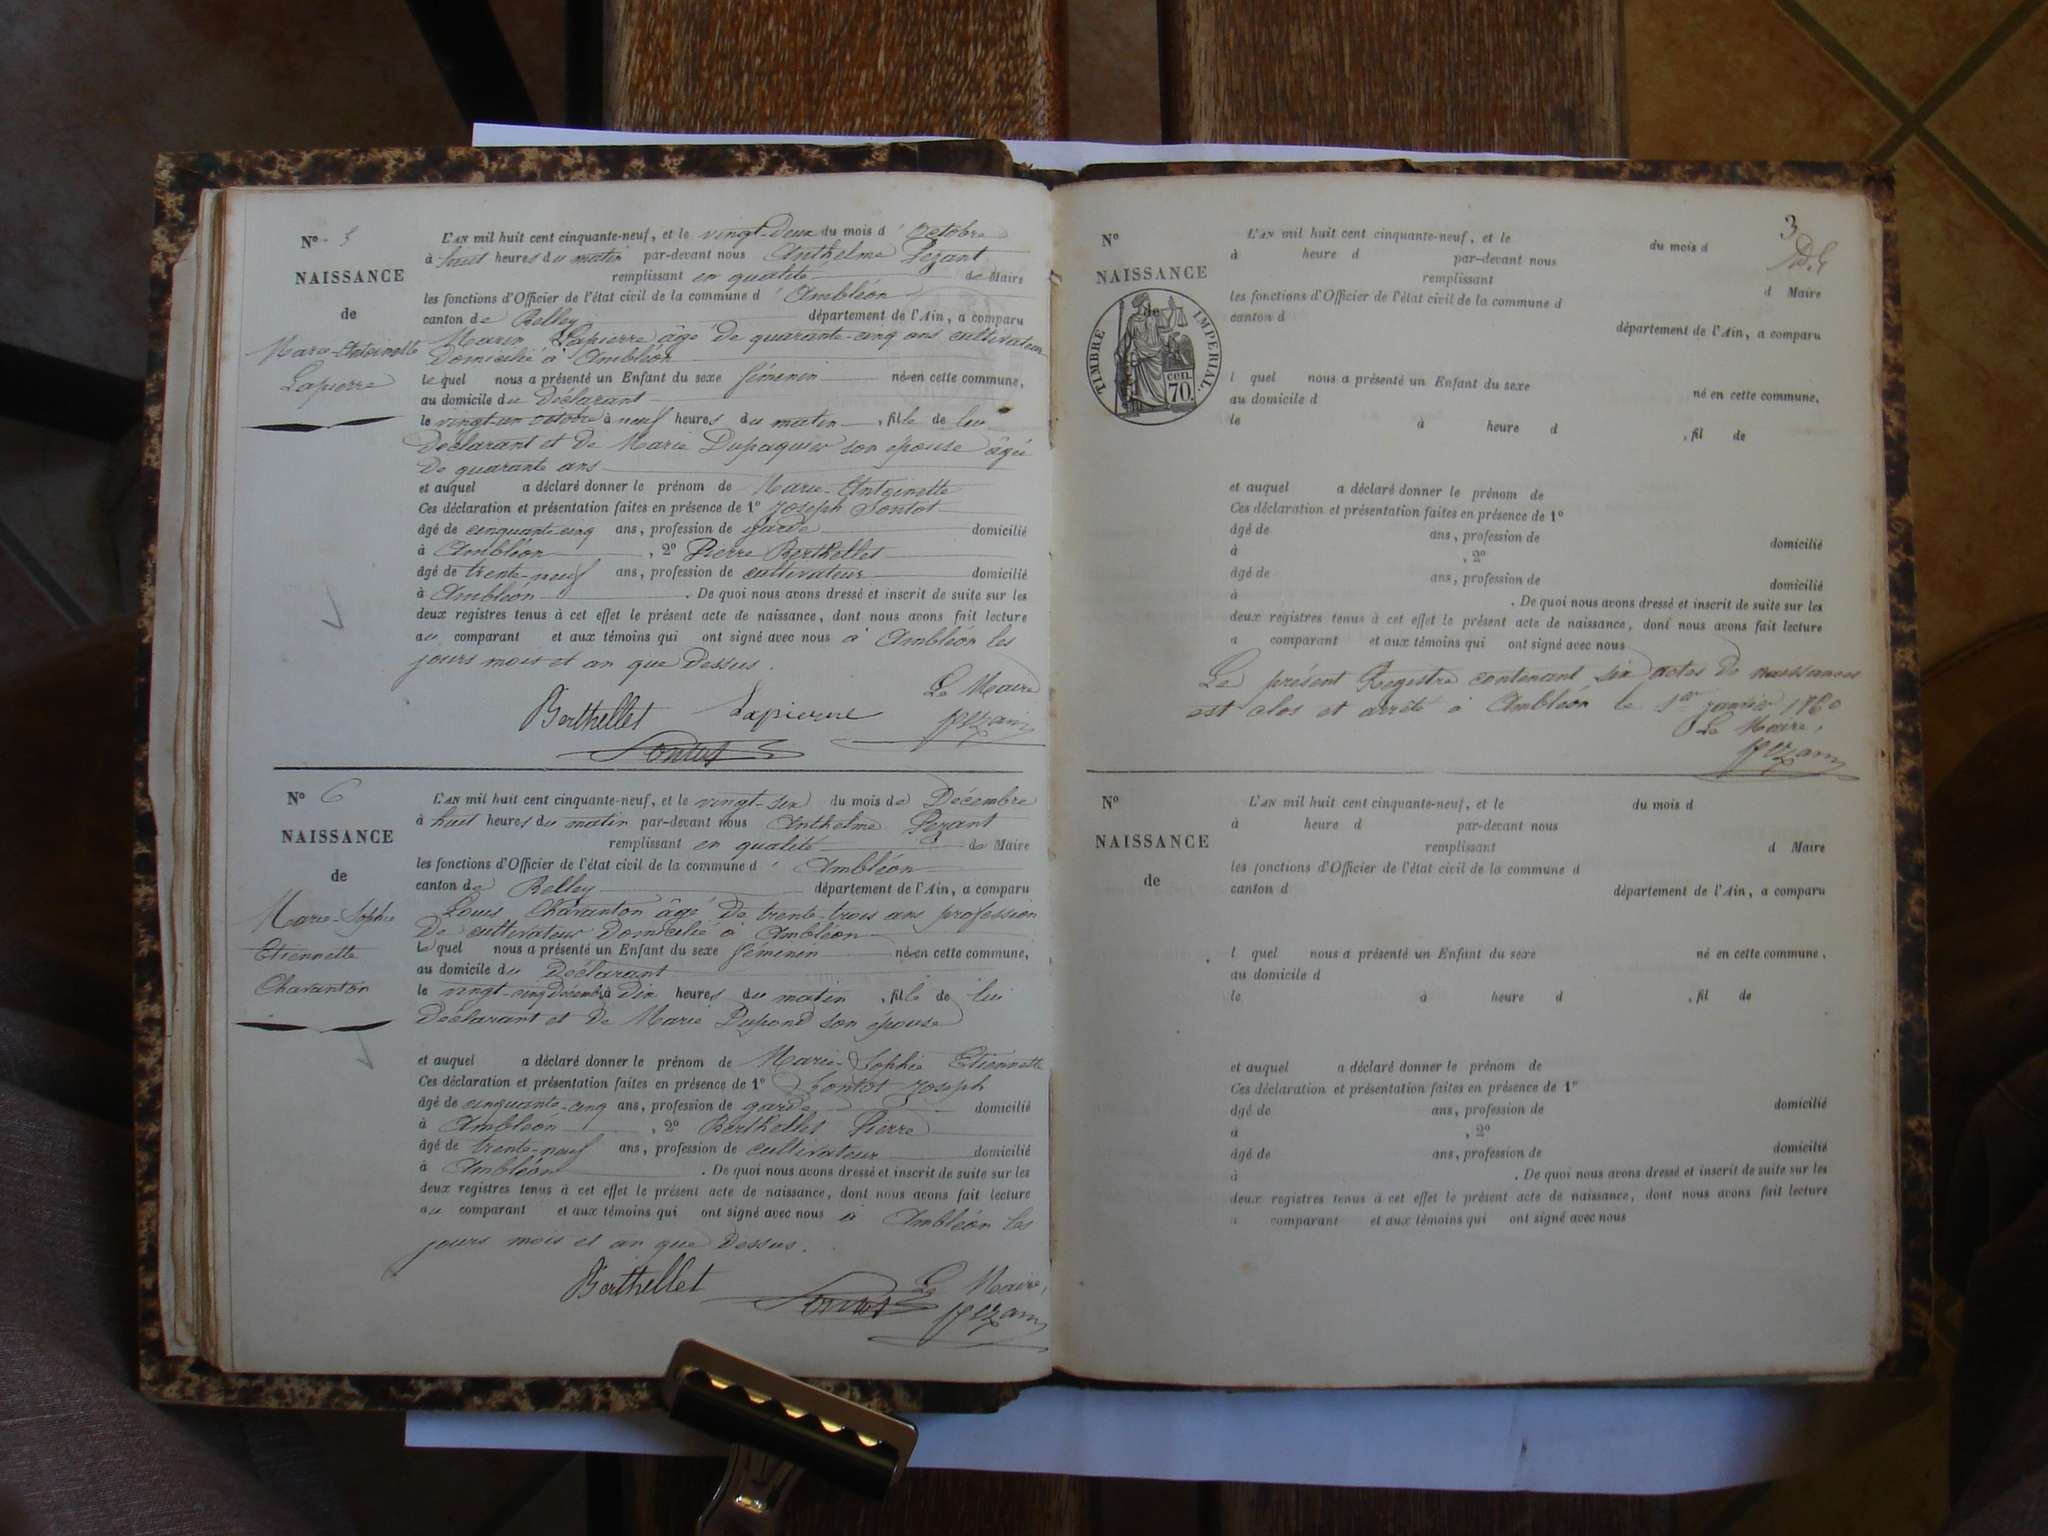 N° 5
NAISSANCE
de
Marie-Antoinette
Lapierre
L'AN mil huit cent cinquante-neuf, et le vingt-deux du mois d'Octobre
à huit heures du matin par-devant nous Anthelme Pezant
remplissant en qualité de Maire
les fonctions d'Officier de l'état civil de la commune d'Ambléon
canton de Belley département de l'Ain, a comparu
Marin Lapierre âgé de quarante-cinq ans cultivateur
domicilié à Ambléon
lequel nous a présenté un Enfant du sexe féminin né en cette commune,
au domicile du déclarant
le vingt-un octobre à neuf heures du matin, fille de lui
déclarant et de Marie Dupaquier son épouse âgée
de quarante ans
et auquel a déclaré donner le prénom de Marie-Antoinette
Ces déclaration et présentation faites en présence de 1° Joseph Sontot
âgé de cinquante-cinq ans, profession de garde domicilié
à Ambléon, 2° Pierre Berthellet
âgé de trente-neuf ans, profession de cultivateur domicilié
à Ambléon. De quoi nous avons dressé et inscrit de suite sur les
deux registres tenus à cet effet le présent acte de naissance, dont nous avons fait lecture
au comparant et aux témoins qui ont signé avec nous à Ambléon les
jours mois et an que dessus.
Le Maire
Berthellet Lapierre pezant
Sontot
N° 6
NAISSANCE
de
Marie-Sophie
Etiennette
Charanton
L'AN mil huit cent cinquante-neuf, et le vingt-six du mois de Décembre
à huit heures du matin par-devant nous Anthelme Pezant
remplissant en qualité de Maire
les fonctions d'Officier de l'état civil de la commune d'Ambléon
canton de Belley département de l'Ain, a comparu
Louis Charanton âgé de trente-trois ans profession
de cultivateur domicilié à Ambléon
lequel nous a présenté un Enfant du sexe féminin né en cette commune,
au domicile du déclarant
le vingt-cinq décembre à dix heures du matin, fille de lui
déclarant et de Marie Dupond son épouse
et auquel a déclaré donner le prénom de Marie-Sophie Etiennette
Ces déclaration et présentation faites en présence de 1° Sontot Joseph
âgé de cinquante-cinq ans, profession de garde domicilié
à Ambléon, 2° Berthellet Pierre
âgé de trente-neuf ans, profession de cultivateur domicilié
à Ambléon. De quoi nous avons dressé et inscrit de suite sur les
deux registres tenus à cet effet le présent acte de naissance, dont nous avons fait lecture
au comparant et aux témoins qui ont signé avec nous à Ambléon les
jours mois et an que dessus.
Berthellet Sontot Le Maire,
pezant
3
N°
NAISSANCE
de
TIMBRE IMPERIAL.
70. cen.
L'AN mil huit cent cinquante-neuf, et le du mois d
à heure d par-devant nous
remplissant d Maire
les fonctions d'Officier de l'état civil de la commune d
canton d département de l'Ain, a comparu
l quel nous a présenté un Enfant du sexe né en cette commune,
au domicile d
le à heure d , fil de
et auquel a déclaré donner le prénom de
Ces déclaration et présentation faites en présence de 1°
âgé de ans, profession de domicilié
à , 2°
âgé de ans, profession de domicilié
à . De quoi nous avons dressé et inscrit de suite sur les
deux registres tenus à cet effet le présent acte de naissance, dont nous avons fait lecture
a comparant et aux témoins qui ont signé avec nous
Le présent Registre contenant six actes de naissances
est clos et arrêté à Ambléon le 1er janvier 1860
Le Maire,
pezant
N°
NAISSANCE
de
L'AN mil huit cent cinquante-neuf, et le du mois d
à heure d par-devant nous
remplissant d Maire
les fonctions d'Officier de l'état civil de la commune d
canton d département de l'Ain, a comparu
l quel nous a présenté un Enfant du sexe né en cette commune,
au domicile d
le à heure d , fil de
et auquel a déclaré donner le prénom de
Ces déclaration et présentation faites en présence de 1°
âgé de ans, profession de domicilié
à , 2°
âgé de ans, profession de domicilié
à . De quoi nous avons dressé et inscrit de suite sur les
deux registres tenus à cet effet le présent acte de naissance, dont nous avons fait lecture
a comparant et aux témoins qui ont signé avec nous